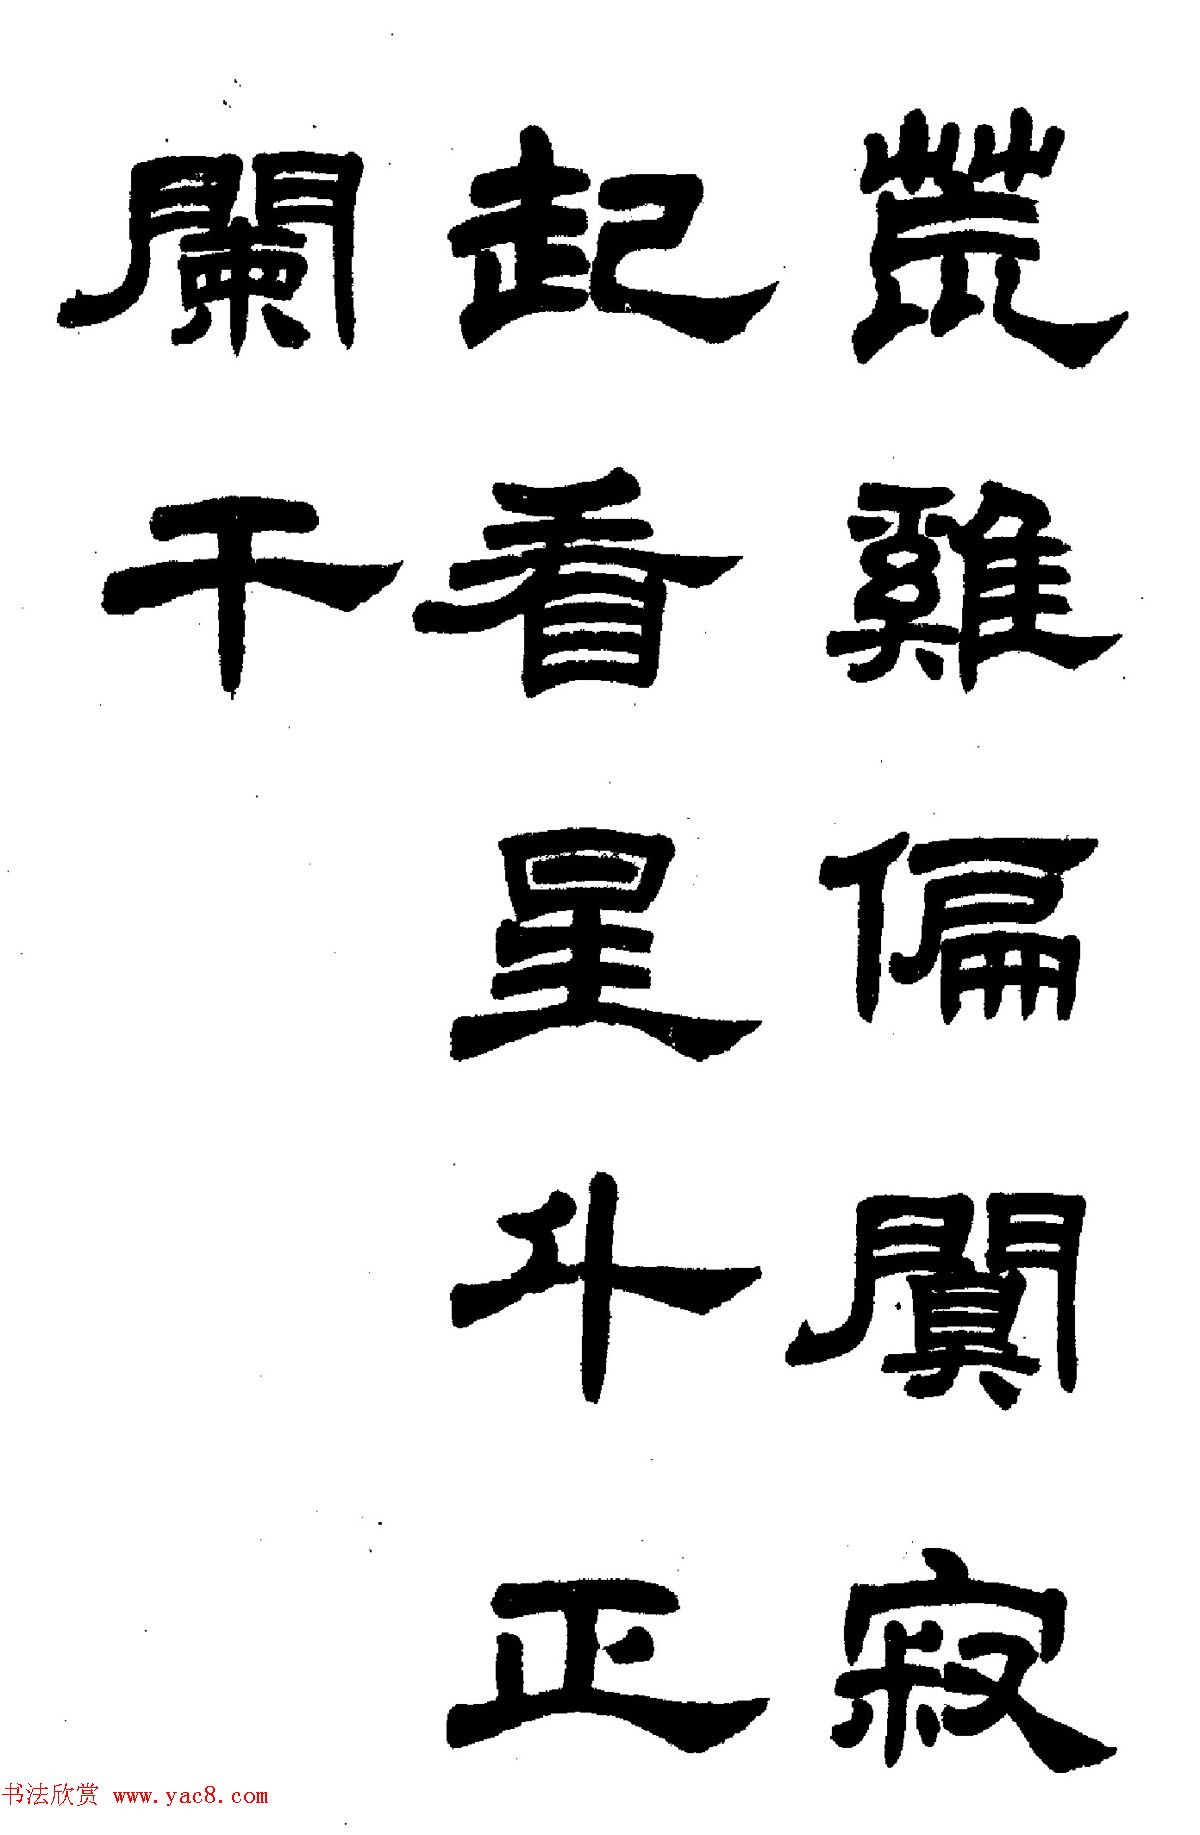 荒雞偏闐寂
起看星斗正
闌干
书法欣赏 www.yac8.com